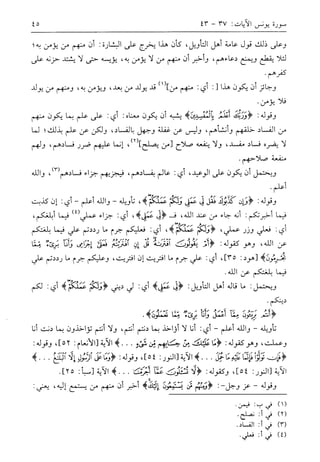 سورة يونس الآيات: ٣٧ - ٤٣
٤٥
وعلى ذلك قول عامة أهل التأويل، كأن هذا يخرج على البشارة: أن منهم من يؤمن به؛
لئلا يقطع ويمنع دعاءهم، وأخبر أن منهم من لا يؤمن به، يؤيسه حتى لا يشتد حزنه على
كفرهم.
وجائز أن يكون هذا [: أي: منهم من](١) قد يولد من بعد، ويؤمن به، ومنهم من يولد
فلا يؤمن.
وقوله: ﴿وَرَبُّكَ أَعْلَمُ بِالْمُفْسِدِينَ﴾ يشبه أن يكون معناه: أي: على علم بما يكون منهم
من الفساد خلقهم وأنشأهم، وليس عن غفلة وجهل بالفساد، ولكن عن علم بذلك؛ لما
لا يضره فساد مفسد، ولا ينفعه صلاح [من يصلح](٢)، إنما عليهم ضرر فسادهم، ولهم
منفعة صلاحهم.
ويحتمل أن يكون على الوعيد، أي: عالم بفسادهم، فيجزيهم جزاء فسادهم(٣)، والله
أعلم.
وقوله: ﴿وَإِن كَذَّبُوكَ فَقُل لِّي عَمَلِي وَلَكُمْ عَمَلُكُمْ﴾، تأويله - والله أعلم - أي: إن كذبت
فيما أخبرتكم: أنه جاء من عند الله، فـ ﴿لِّي عَمَلِي﴾، أي: جزاء عملي(٤) فيما أبلغكم،
أي: فعلي وزر عملي، ﴿وَلَكُمْ عَمَلُكُمْ﴾، أي: فعليكم جرم ما رددتم علي فيما بلغتكم
عن الله، وهو كقوله: ﴿أَمْ يَقُولُونَ افْتَرَاهُ قُلْ إِنِ افْتَرَيْتُهُ فَعَلَيَّ إِجْرَامِي وَأَنَا بَرِيءٌ مِّمَّا
تُجْرِمُونَ﴾ [هود: ٣٥]، أي: علي جرم ما افتريت إن افتريت، وعليكم جرم ما رددتم علي
فيما بلغتكم عن الله.
ويحتمل: ما قاله أهل التأويل: ﴿لِّي عَمَلِي﴾ أي: لي ديني ﴿وَلَكُمْ عَمَلُكُمْ﴾ أي: لكم
دينكم.
﴿أَنتُم بَرِيئُونَ مِمَّا أَعْمَلُ وَأَنَا بَرِيءٌ مِّمَّا تَعْمَلُونَ﴾.
تأويله - والله أعلم - أي: أنا لا أؤاخذ بما دنتم أنتم، ولا أنتم تؤاخذون بما دنت أنا
وعملت، وهو كقوله: ﴿مَا عَلَيْكَ مِنْ حِسَابِهِم مِّن شَيْءٍ . . .﴾ الآية [الأنعام: ٥٢]، وقوله:
﴿فَإِن تَوَلَّوْا فَإِنَّمَا عَلَيْهِ مَا حُمِّلَ . . .﴾ الآية [النور: ٥٤]، وقوله: ﴿وَمَا عَلَى الرَّسُولِ إِلَّا الْبَلَاغُ . . .﴾
الآية [النور: ٥٤]، وكقوله: ﴿لَّا تُسْأَلُونَ عَمَّا أَجْرَمْنَا . . .﴾ الآية [سبأ: ٢٥].
وقوله - عز وجل -: ﴿وَمِنْهُم مَّن يَسْتَمِعُونَ إِلَيْكَ﴾ أخبر أن منهم من يستمع إليه، يعني:
(١) في ب: فيمن.
(٢) في أ: نصلح.
(٣) في أ: الفساد.
(٤) في أ: فعلي.